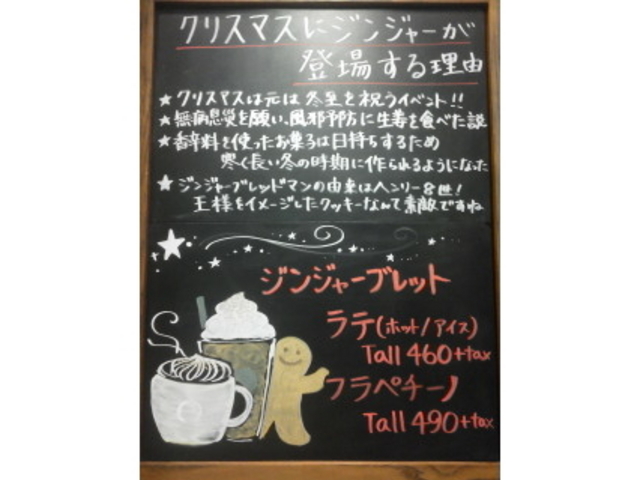 クリスマスにジンジャーが
登場する理由
★クリスマスは元は冬至を祝うイベント!!
★無病息災を願い、風邪予防に生姜を食べた説
★香辛料を使ったお菓子は日持ちするため
寒く長い冬の時期に作られるようになった
★ジンジャーブレッドマンの由来はヘンリー8世!
王様をイメージしたクッキーなんて素敵ですね
ジンジャーブレット
ラテ(ホット/アイス)
Tall 460+tax
フラペチーノ
Tall 490+tax